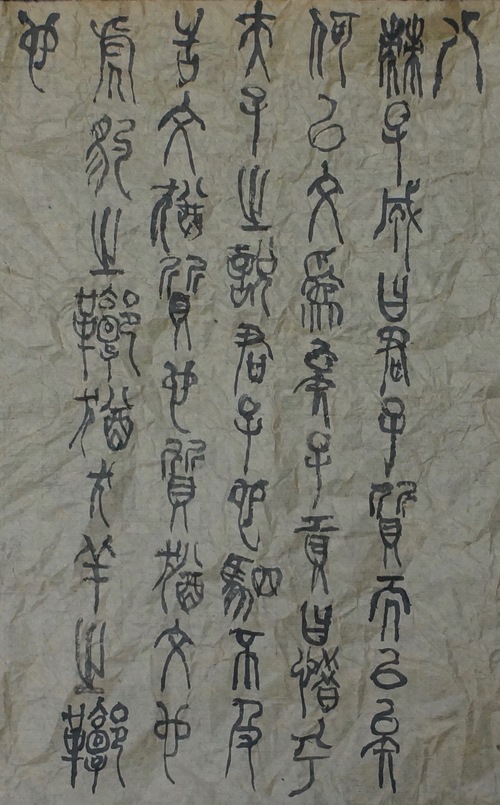 八
棘子成曰君子質而已矣
何以文為矣子貢曰惜乎
夫子之說君子也駟不及
舌文猶質也質猶文也
虎豹之鞹猶犬羊之鞹
也